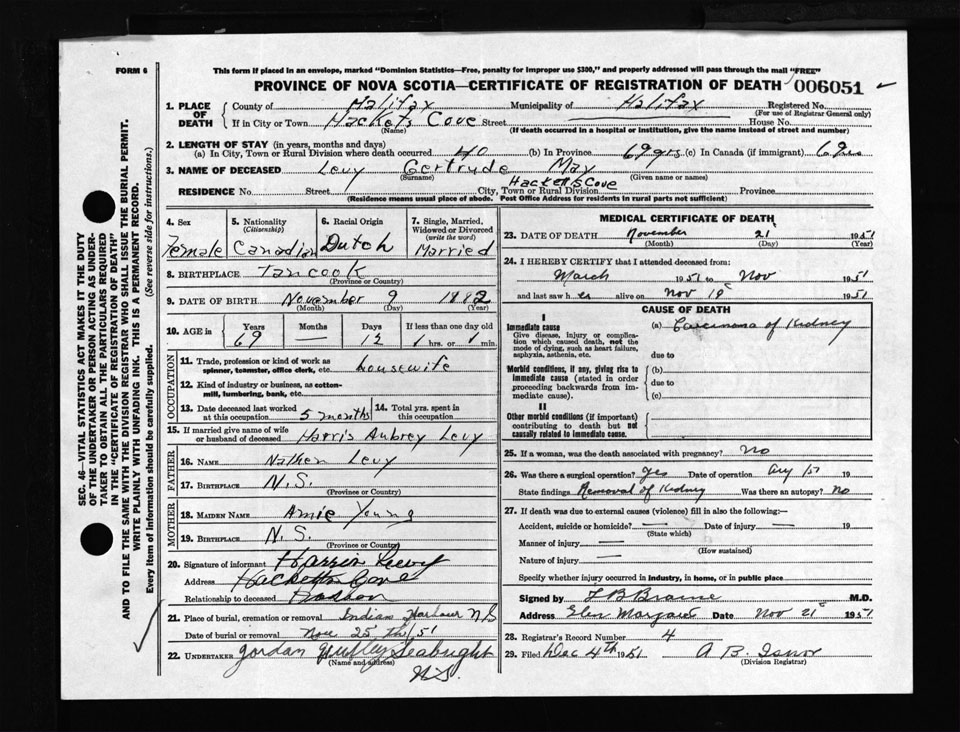 FORM 6
This form if placed in an envelope, marked "Dominion Statistics—Free, penalty for improper use $300," and properly addressed will pass through the mail "FREE"
PROVINCE OF NOVA SCOTIA—CERTIFICATE OF REGISTRATION OF DEATH 006051
1. PLACE OF DEATH County of Halifax Municipality of Halifax Registered No.
(For use of Registrar General only)
If in City or Town Hackets Cove Street House No.
(Name) (If death occurred in a hospital or institution, give the name instead of street and number)
2. LENGTH OF STAY (in years, months and days)
(a) In City, Town or Rural Division where death occurred 40 (b) In Province 69 yrs (c) In Canada (if immigrant) 69 yrs
3. NAME OF DECEASED Levy Gertrude May
(Surname) (Given name or names)
RESIDENCE No. Street City, Town or Rural Division Hacketts Cove Province
(Residence means usual place of abode. Post Office Address for residents in rural parts not sufficient)
4. Sex Female
5. Nationality (Citizenship) Canadian
6. Racial Origin Dutch
7. Single, Married, Widowed or Divorced (write the word) Married
8. BIRTHPLACE Tancook
(Province or Country)
9. DATE OF BIRTH November 9 1882
(Month) (Day) (Year)
10. AGE in Years Months Days If less than one day old
69 — 12 hrs. or min.
OCCUPATION
11. Trade, profession or kind of work as spinner, teamster, office clerk, etc. housewife
12. Kind of industry or business, as cotton-mill, lumbering, bank, etc.
13. Date deceased last worked at this occupation 5 months
14. Total yrs. spent in this occupation
15. If married give name of wife or husband of deceased Harris Aubrey Levy
FATHER
16. NAME Nathen Levy
17. BIRTHPLACE N.S.
(Province or Country)
MOTHER
18. MAIDEN NAME Amie Young
19. BIRTHPLACE N.S.
(Province or Country)
20. Signature of informant Harris Levy
Address Hacketts Cove
Relationship to deceased
21. Place of burial, cremation or removal Indian Harbour N.S
Date of burial or removal Nov 25 th 51
22. UNDERTAKER Gordan Seabright
(Name and address)
N.S.
MEDICAL CERTIFICATE OF DEATH
23. DATE OF DEATH November 21 1951
(Month) (Day) (Year)
24. I HEREBY CERTIFY that I attended deceased from:
March 1951 to Nov 1951
and last saw her alive on Nov 19 1951
CAUSE OF DEATH
I
Immediate cause (a) Carcinoma of Kidney
Give disease, injury or complication which caused death, not the mode of dying, such as heart failure, asphyxia, asthenia, etc.
due to
Morbid conditions, if any, giving rise to immediate cause (stated in order proceeding backwards from immediate cause).
(b)
due to
(c)
II
Other morbid conditions (if important) contributing to death but not causally related to immediate cause.
25. If a woman, was the death associated with pregnancy? no
26. Was there a surgical operation? yes Date of operation Aug 51 19
State findings Removal of Kidney Was there an autopsy? no
27. If death was due to external causes (violence) fill in also the following:—
Accident, suicide or homicide? — Date of injury — 19
(State which)
Manner of injury —
(How sustained)
Nature of injury —
Specify whether injury occurred in industry, in home, or in public place
Signed by M.D.
Address Glen Margaret Date Nov 21 1951
28. Registrar's Record Number 4
29. Filed Dec 4th 1951 A B. Isnor
(Division Registrar)
SEC. 46—VITAL STATISTICS ACT MAKES IT THE DUTY
OF THE UNDERTAKER OR PERSON ACTING AS UNDER-
TAKER TO OBTAIN ALL THE PARTICULARS REQUIRED
IN THE "CERTIFICATE OF REGISTRATION OF DEATH"
AND TO FILE THE SAME WITH THE DIVISION REGISTRAR WHO SHALL ISSUE THE BURIAL PERMIT.
WRITE PLAINLY WITH UNFADING INK. THIS IS A PERMANENT RECORD.
Every item of information should be carefully supplied. (See reverse side for instructions.)